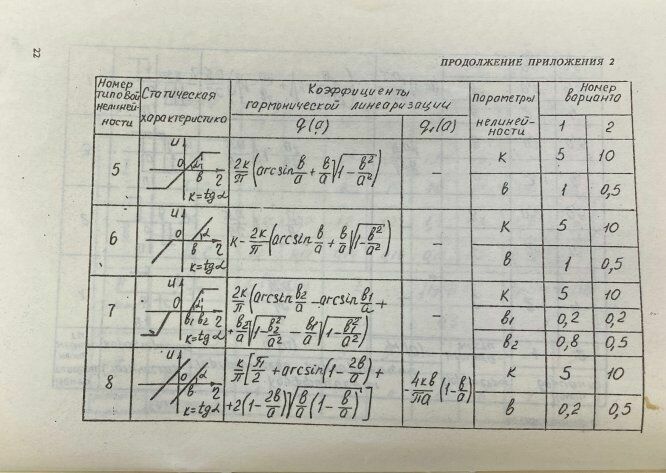 22
ПРОДОЛЖЕНИЕ ПРИЛОЖЕНИЯ 2
Номер типовой нелинейности
Статическая характеристика
Коэффициенты гармонической линеаризации
q(a)
q₁(a)
Параметры нелинейности
Номер варианта
1 2
5
u 0 α в 2
к=tgα
2к/π (arcsin в/a + в/a √(1-в²/a²))
–
к 5 10
в 1 0,5
6
u 0 α в 2
к=tgα
к-2к/π (arcsin в/a + в/a √(1-в²/a²))
–
к 5 10
в 1 0,5
7
u 0 α в₁ в₂ 2
к=tgα
2к/π (arcsin в₂/a - arcsin в₁/a +
+ в₂/a √(1-в₂²/a²) - в₁/a √(1-в₁²/a²))
–
к 5 10
в₁ 0,2 0,2
в₂ 0,8 0,5
8
u 0 α в 2
к=tgα
к/π [π/2 + arcsin(1-2в/a) +
+2(1-2в/a)√(в/a (1-в/a)) ]
-4кв/πa (1-в/a)
к 5 10
в 0,2 0,5